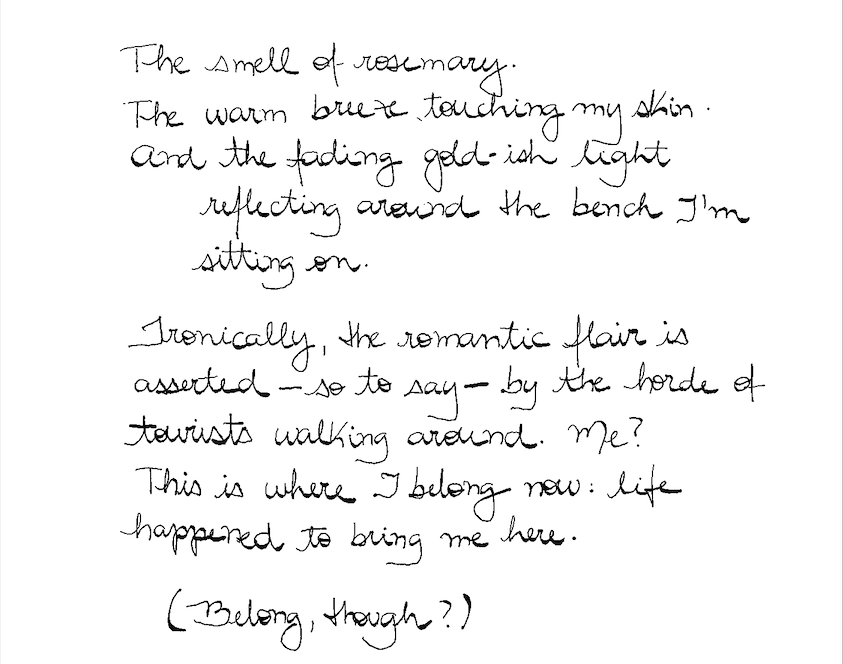 The smell of rosemary.
The warm breeze touching my skin.
And the fading gold-ish light
reflecting around the bench I'm
sitting on.
Ironically, the romantic flair is
asserted – so to say – by the horde of
tourists walking around. Me?
This is where I belong now: life
happened to bring me here.
(Belong, though?)